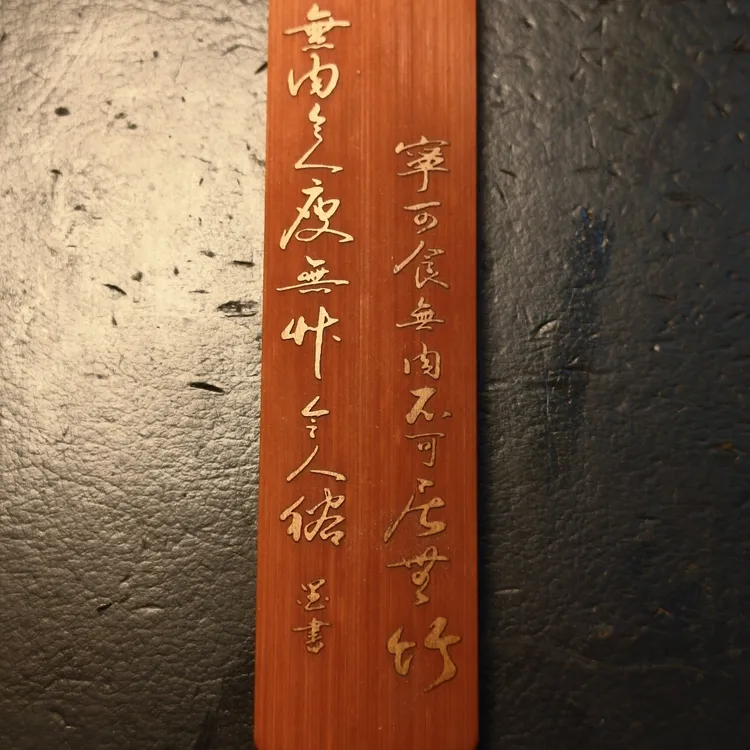 寧可食無肉不可居無竹
無肉令人瘦無竹令人俗
書